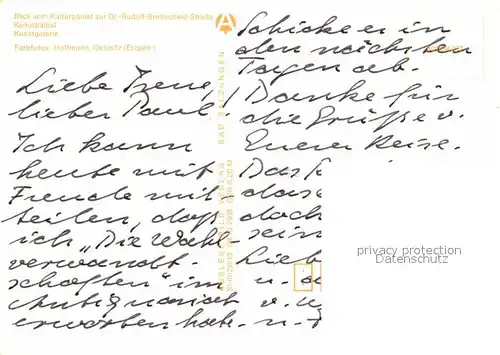 Blick vom Kulturpalast zur Dr.-Rudolf-Breitscheid-Straße
Kulturpalast
Kunstgalerie
Farbfotos: Hoffmann, Oelsnitz (Erzgeb.)
Liebe Irene,
lieber Paul!
Ich kann
heute mit
Freude mit-
teilen, daß
ich „Die Wahl-
verwandt-
schaften" im
Antiquariat
erworben habe.
BAD SALZUNGEN
VERLAG
Schicke er in
den nächsten
Tagen ab.
Danke für
die Grüße v.
Eurer Reise.
Das
das
doch
sein
Lieb
u.
v.
u.
privacy protection
Datenschutz